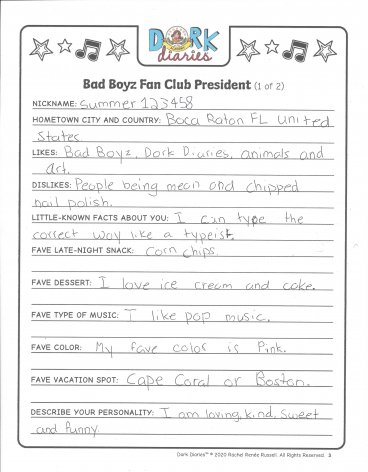 DORK
diaries
Bad Boyz Fan Club President (1 of 2)
NICKNAME: Summer 123458
HOMETOWN CITY AND COUNTRY: Boca Raton FL United
States
LIKES: Bad Boyz, Dork Diaries, animals and
art.
DISLIKES: People being mean and chipped
nail polish.
LITTLE-KNOWN FACTS ABOUT YOU: I can type the
correct way like a typeist.
FAVE LATE-NIGHT SNACK: corn chips.
FAVE DESSERT: I love ice cream and cake.
FAVE TYPE OF MUSIC: I like pop music.
FAVE COLOR: My fave color is Pink.
FAVE VACATION SPOT: Cape Coral or Boston.
DESCRIBE YOUR PERSONALITY: I am loving, kind, sweet
and funny.
Dork Diaries™ © 2020 Rachel Renée Russell. All Rights Reserved. 3